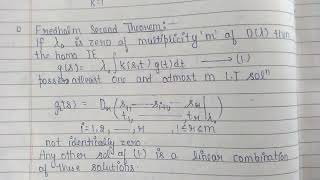 K=1
Fredholm Second Theorem:-
If λ₀ is zero of multiplicity 'm' of D(λ) then
the homo IE
g(s) = λ₀ ∫ k(s,t) g(t) dt → (1.)
posses atleast one and atmost m L.I solⁿ
gᵢ(s) = Dᵣ ( s₁, ... sᵢ₋₁, ... sᵣ
t₁, ... tᵣ | )
i=1,2, ..., r , 1≤r≤m
not identically zero.
Any other sol of (1.) is a linear combination
of these solutions.